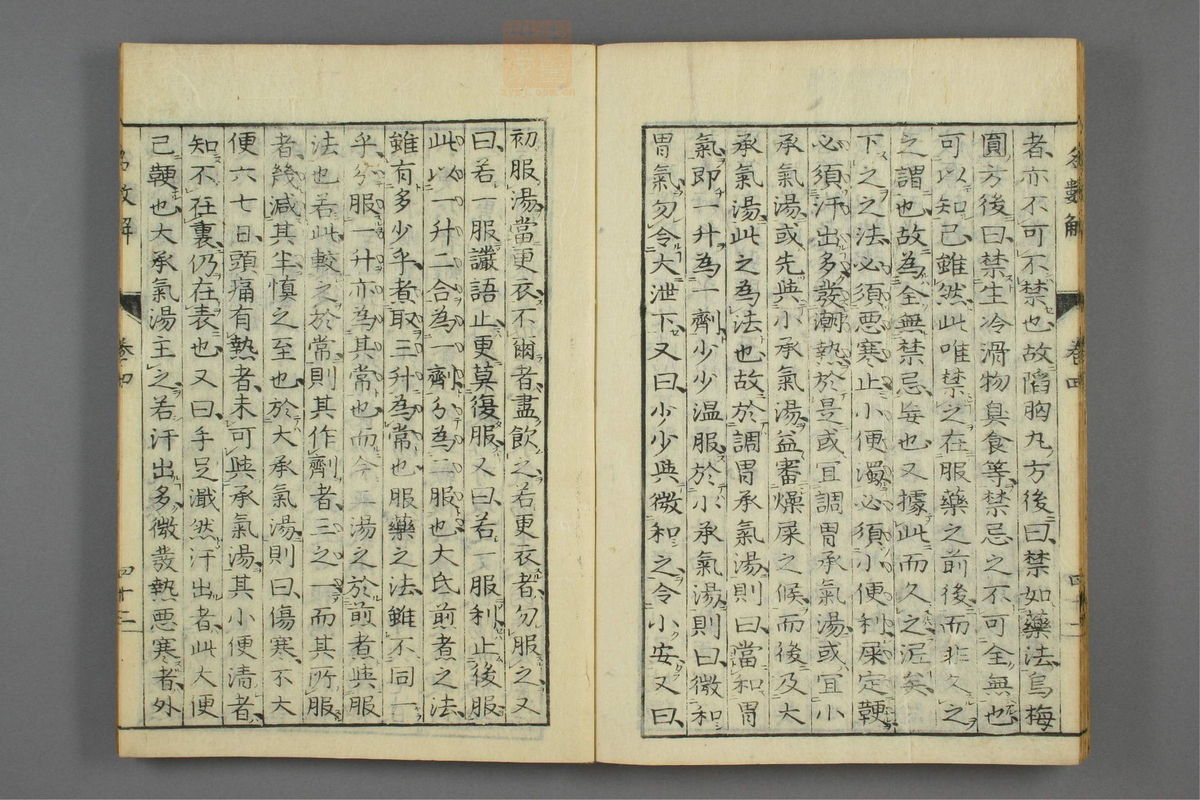 者亦不可不禁也故陷胸丸方後曰禁如藥法烏梅
圓方後曰禁生冷滑物臭食等禁忌之不可全無也
可以知已雖然此唯禁之在服藥之前後而非久之
之謂也故為全無禁忌妄也又據此而久之泥矣
下之之法必須惡寒止小便濁必須小便利屎定鞕
必須汗出多發潮熱於是或宜調胃承氣湯或宜小
承氣湯或先與小承氣湯益審燥屎之候而後及大
承氣湯此之為法也故於調胃承氣湯則曰當和胃
氣即一升為一劑少少温服於小承氣湯則曰微和
胃氣勿令大泄下又曰少少與微和之令小安又曰
卷四
初服湯當更衣不爾者盡飲之若更衣者勿服之又
曰若一服讝語止更莫復服又曰若一服利止後服
此以一升二合為一劑分為二服也大氐煎煮之法
雖有多少乎煮取三升為常也服藥之法雖不同一
乎分服一升亦為其常也而今湯之於煎煮與服
法也若此較之於常則其作劑者三之一而其所服
者幾減其半慎之至也於大承氣湯則曰傷寒不大
便六七日頭痛有熱者未可與承氣湯其小便清者
知不在裏仍在表也又曰手足濈然汗出者此大便
已鞕也大承氣湯主之若汗出多微發熱惡寒者外
卷四
四十二